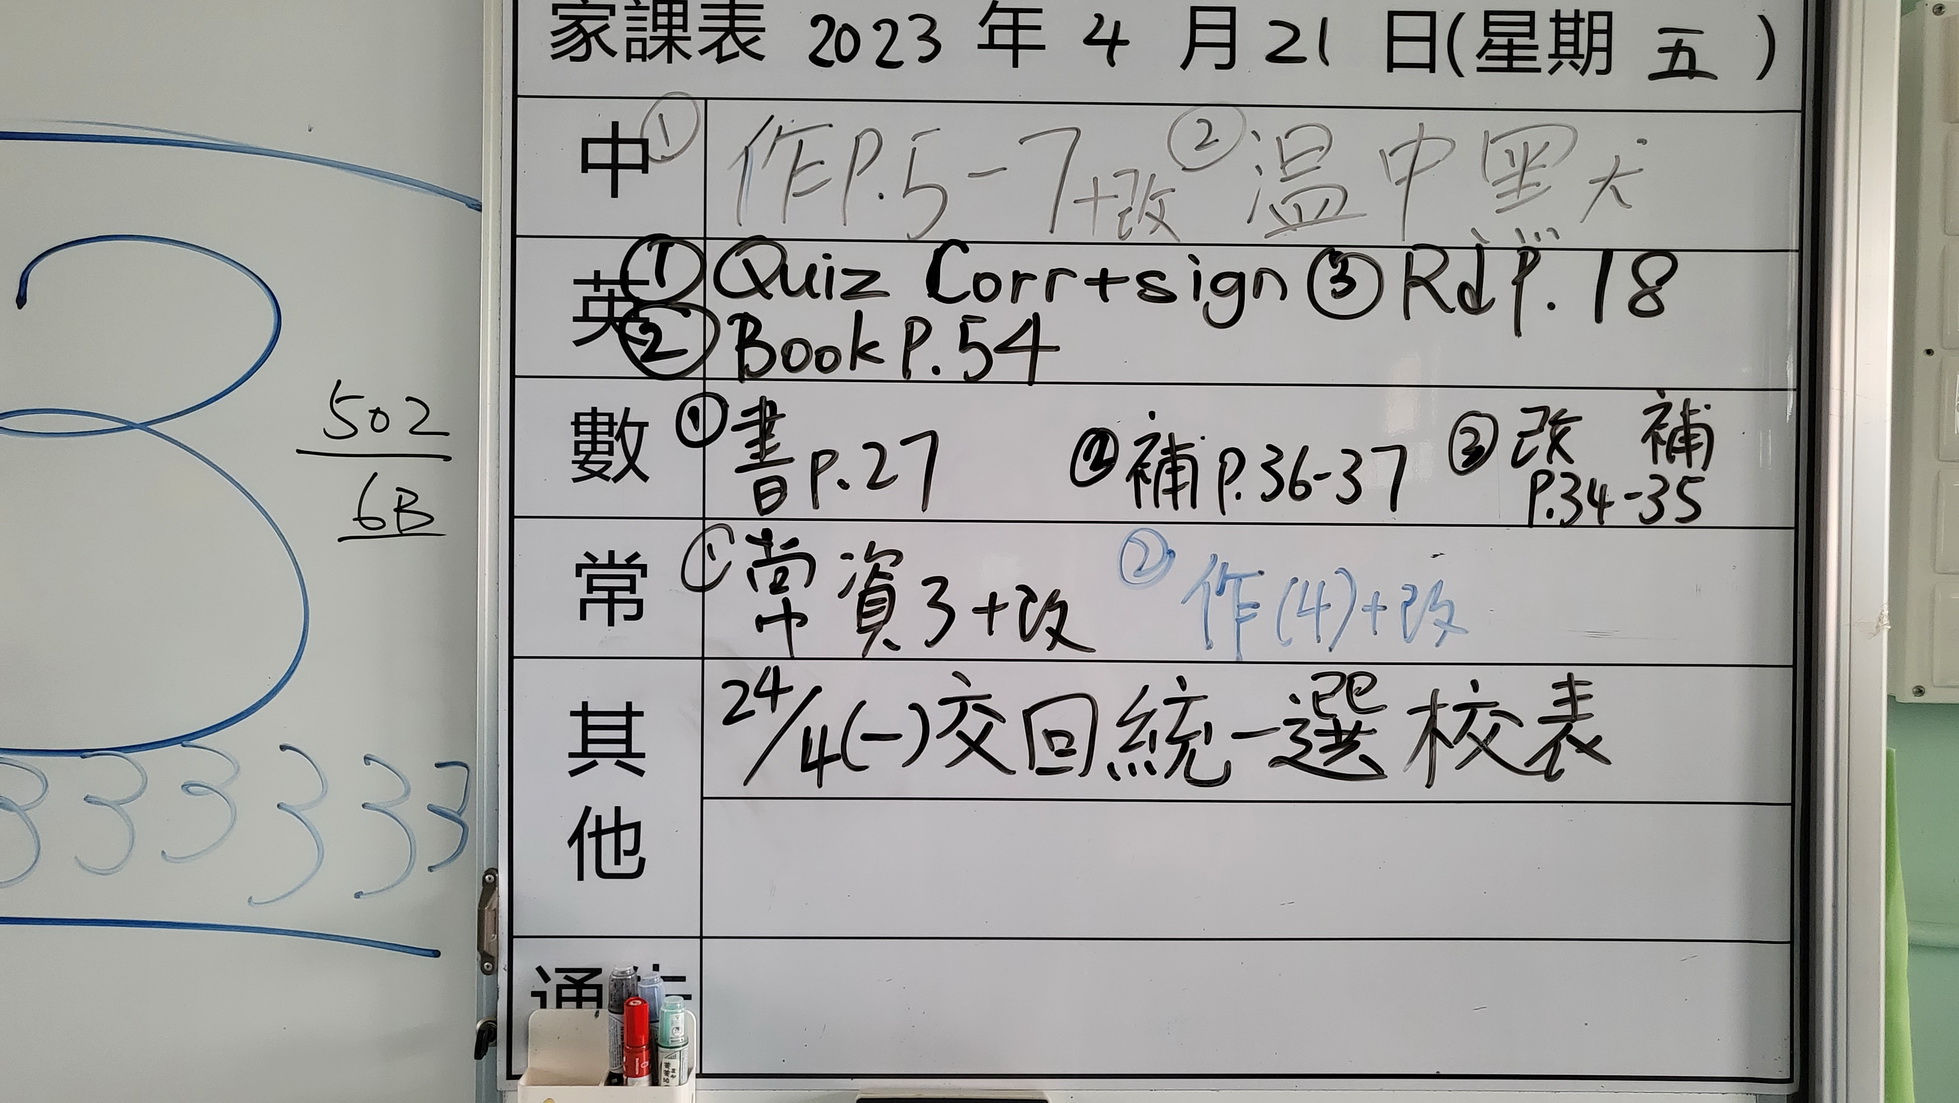 家課表 2023 年 4 月 21 日(星期 五 )
中 ① 作P.5-7+改 ② 温中黑犬
英 ① Quiz Corr+sign ③ Rd P.18
② Book P.54
數 ① 書P.27 ② 補P.36-37 ③ 改 補
P.34-35
常 ① 常資3+改 ② 作(4)+改
其他 24/4(一)交回統一選校表
通
502
6B
3
3 3 3 3 3 3